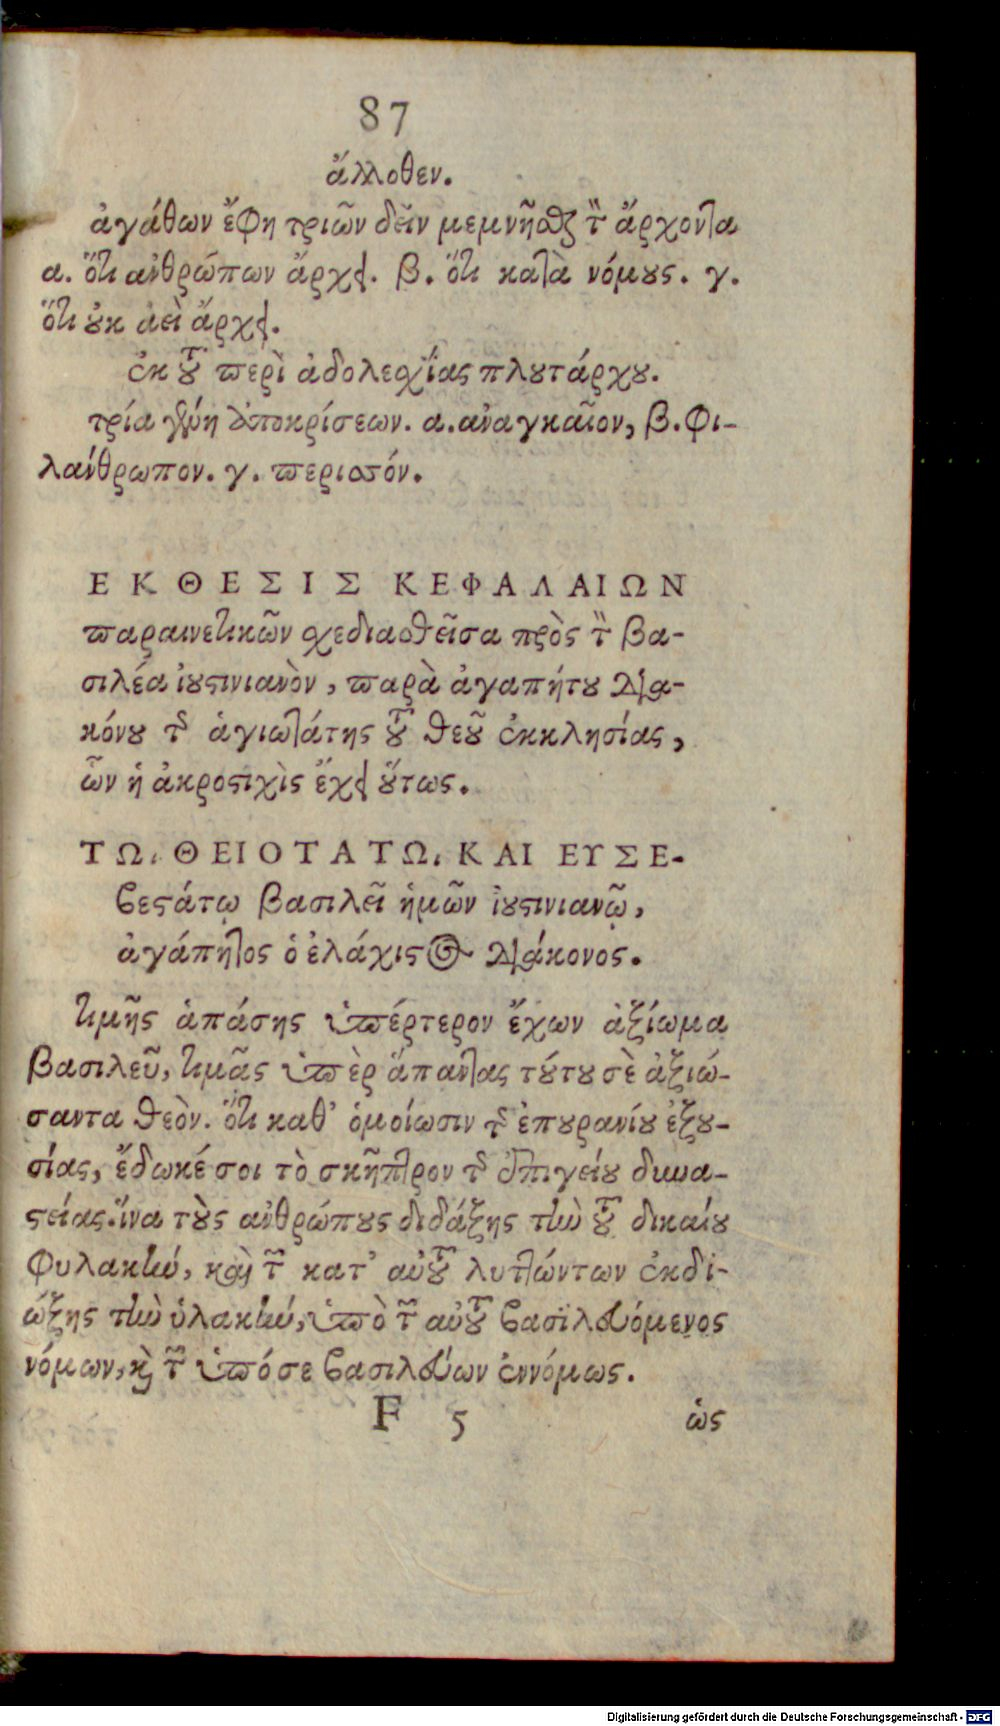 87
ἄλλοθεν.
ἀγάθων ἔφη τριῶν δεῖν μεμνῆσθαι τὸν ἄρχοντα
α. ὅτι ἀνθρώπων ἄρχει. β. ὅτι κατὰ νόμους. γ.
ὅτι οὐκ ἀεὶ ἄρχει.
ἐκ τοῦ περὶ ἀδολεσχίας πλουτάρχου.
τρία γένη ἀποκρίσεων. α. ἀναγκαῖον, β. φι-
λάνθρωπον. γ. περισσόν.
ΕΚΘΕΣΙΣ ΚΕΦΑΛΑΙΩΝ
παραινετικῶν σχεδιασθεῖσα πρὸς τὸν βα-
σιλέα ἰουστινιανὸν, παρὰ ἀγαπήτου δια-
κόνου τῆς ἁγιωτάτης τοῦ θεοῦ ἐκκλησίας,
ὧν ἡ ἀκροστιχὶς ἔχει οὕτως.
ΤΩ. ΘΕΙΟΤΑΤΩ. ΚΑΙ ΕΥΣΕ-
βεστάτῳ βασιλεῖ ἡμῶν ἰουστινιανῷ,
ἀγάπητος ὁ ἐλάχιστος διάκονος.
τιμῆς ἁπάσης ὑπέρτερον ἔχων ἀξίωμα
βασιλεῦ, τιμᾶς ὑπὲρ ἅπαντας τούτου σὲ ἀξιώ-
σαντα θεὸν. ὅτι καθ' ὁμοίωσιν τῆς ἐπουρανίου ἐξου-
σίας, ἔδωκέ σοι τὸ σκῆπτρον τῆς ἐπιγείου δυνα-
στείας. ἵνα τοὺς ἀνθρώπους διδάξης τὴν τοῦ δικαίου
φυλακὴν, καὶ τῶν κατ' αὐτοῦ λυττώντων ἐκδι-
ώξης τὴν ὑλακὴν, ὑπὸ τῶν αὐτοῦ βασιλευόμενος
νόμων, καὶ τῶν ὑπό σε βασιλεύων ἐννόμως.
F 5 ὡς
Digitalisierung gefördert durch die Deutsche Forschungsgemeinschaft - DFG